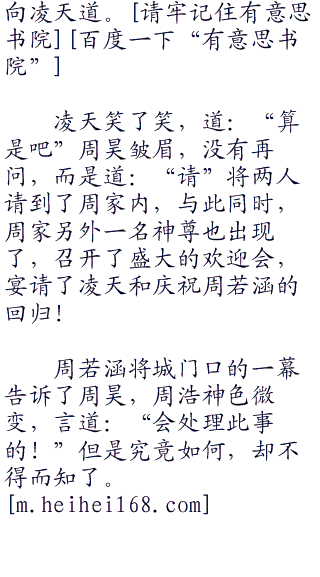 向凌天道。[请牢记住有意思
书院][百度一下“有意思书
院”]
凌天笑了笑，道：“算
是吧”周昊皱眉，没有再
问，而是道：“请”将两人
请到了周家内，与此同时，
周家另外一名神尊也出现
了，召开了盛大的欢迎会，
宴请了凌天和庆祝周若涵的
回归！
周若涵将城门口的一幕
告诉了周昊，周浩神色微
变，言道：“会处理此事
的！”但是究竟如何，却不
得而知了。
[m.heihei168.com]